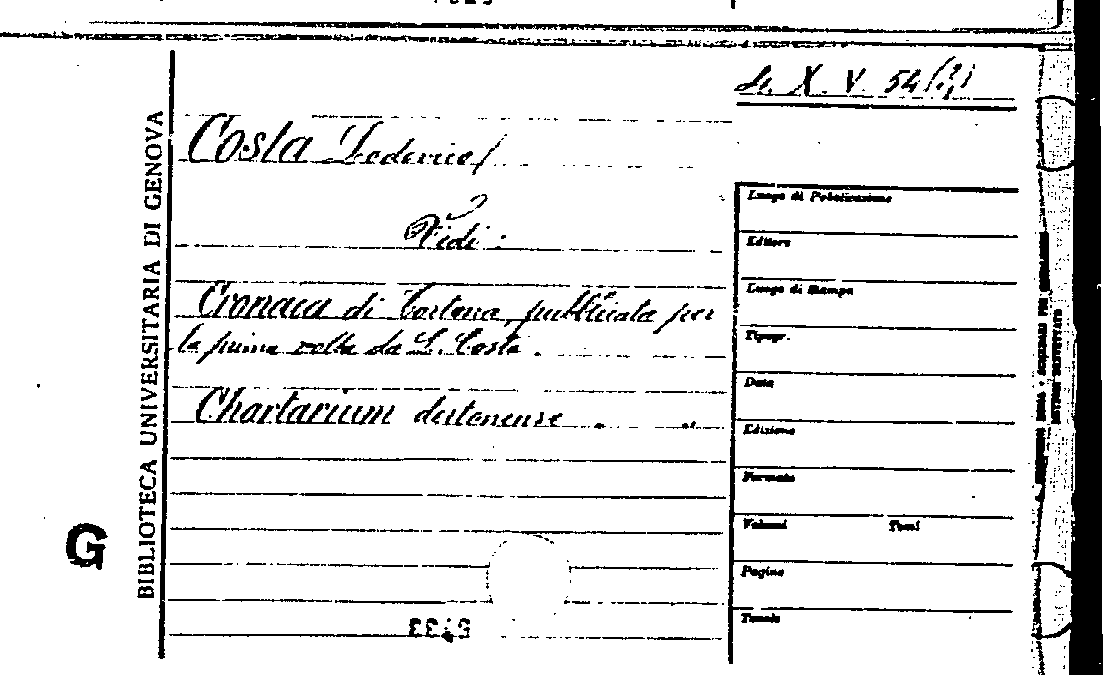 X. V. 54
Costa Lodovico
Vidi:
Cronaca di Tortona, pubblicata per
la prima volta da L. Costa.
Chartarium dertonense
BIBLIOTECA UNIVERSITARIA DI GENOVA
G
Luogo di Pubblicazione
Editore
Luogo di Stampa
Tipogr.
Data
Edizione
Formato
Volumi Tomi
Pagine
Tavole